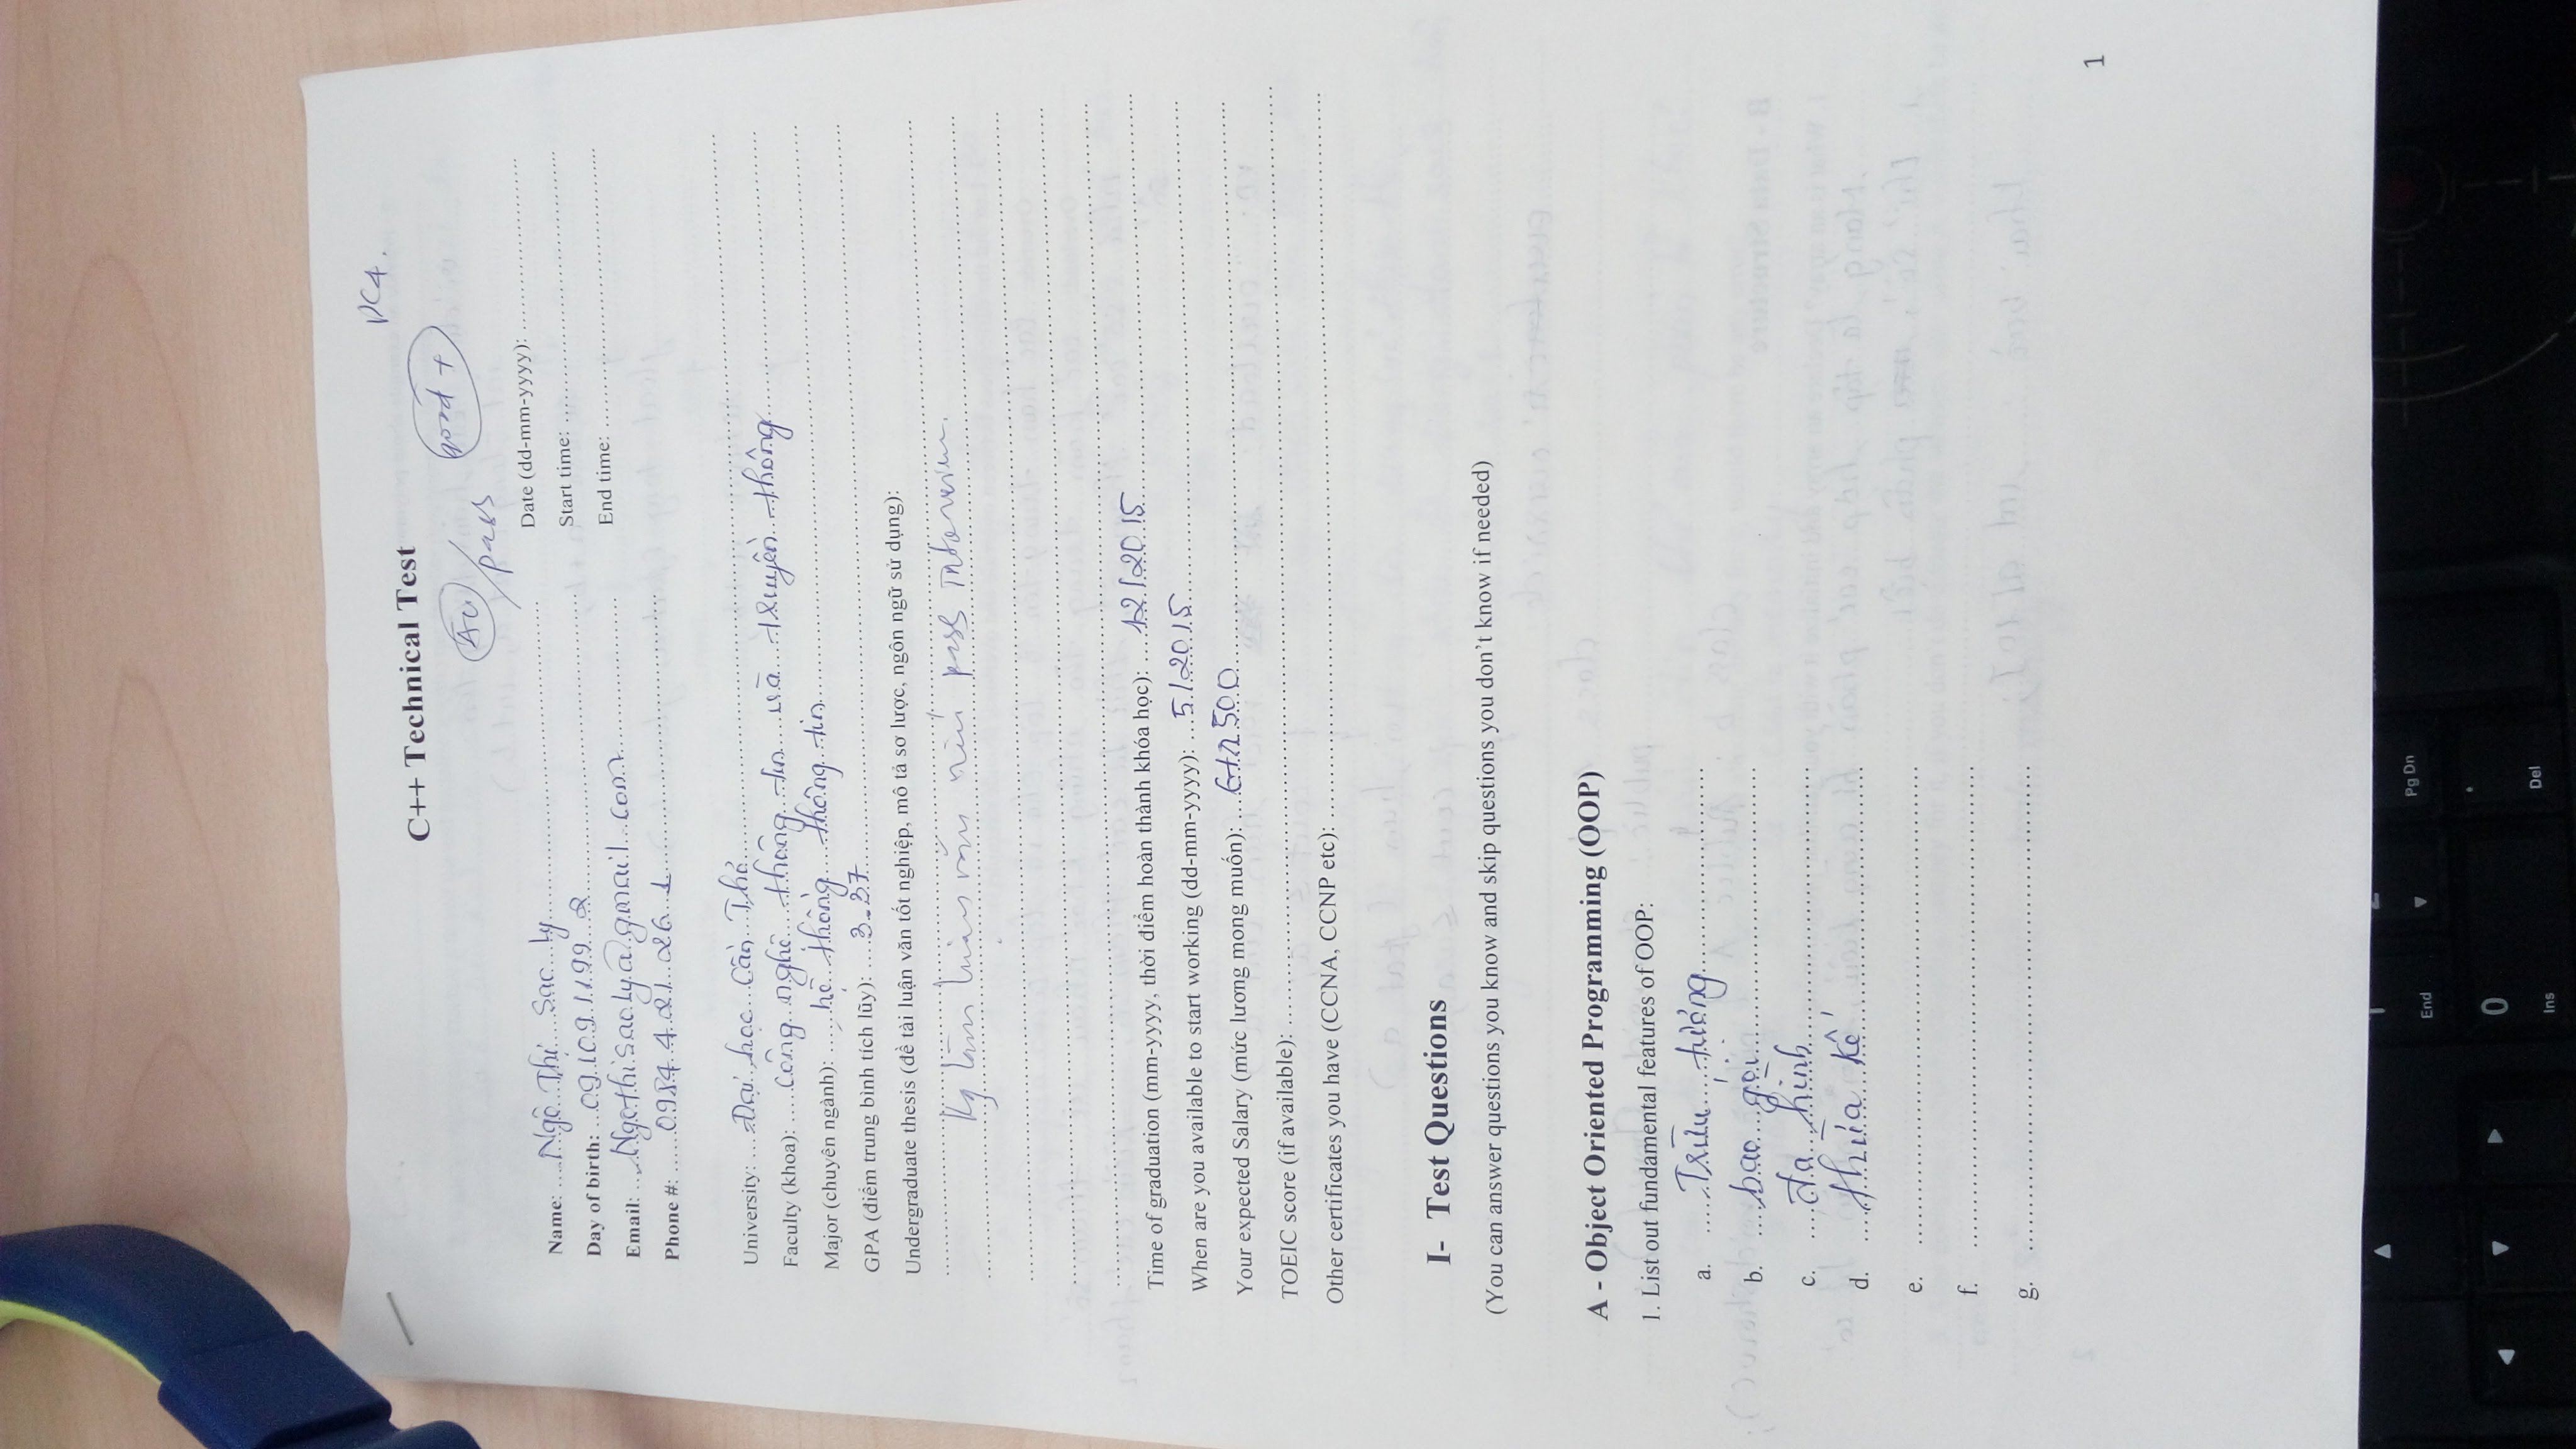 DC4.
C++ Technical Test
good +
/pass
Name: Ngô Thị Sac Ly
Date (dd-mm-yyyy):
Day of birth: 09.10.9.1.1992
Start time:
Email: Ngothisacly@gmail.com
End time:
Phone #: 0984421261
University: Đại học Cần Thơ
Faculty (khoa): Công nghệ thông tin và truyền thông
Major (chuyên ngành): hệ thống thông tin
GPA (điểm trung bình tích lũy): 3.37
Undergraduate thesis (đề tài luận văn tốt nghiệp, mô tả sơ lược, ngôn ngữ sử dụng):
pass
Time of graduation (mm-yyyy, thời điểm hoàn thành khóa học): 12/2015
When are you available to start working (dd-mm-yyyy): 5/2015
Your expected Salary (mức lương mong muốn): 500
TOEIC score (if available):
Other certificates you have (CCNA, CCNP etc):
I- Test Questions
(You can answer questions you know and skip questions you don't know if needed)
A - Object Oriented Programming (OOP)
1. List out fundamental features of OOP:
a. Trừu tượng
b. bao gói
c. đa hình
d. thừa kế
e.
f.
g.
1
Pg Dn
End
Del
0
Ins